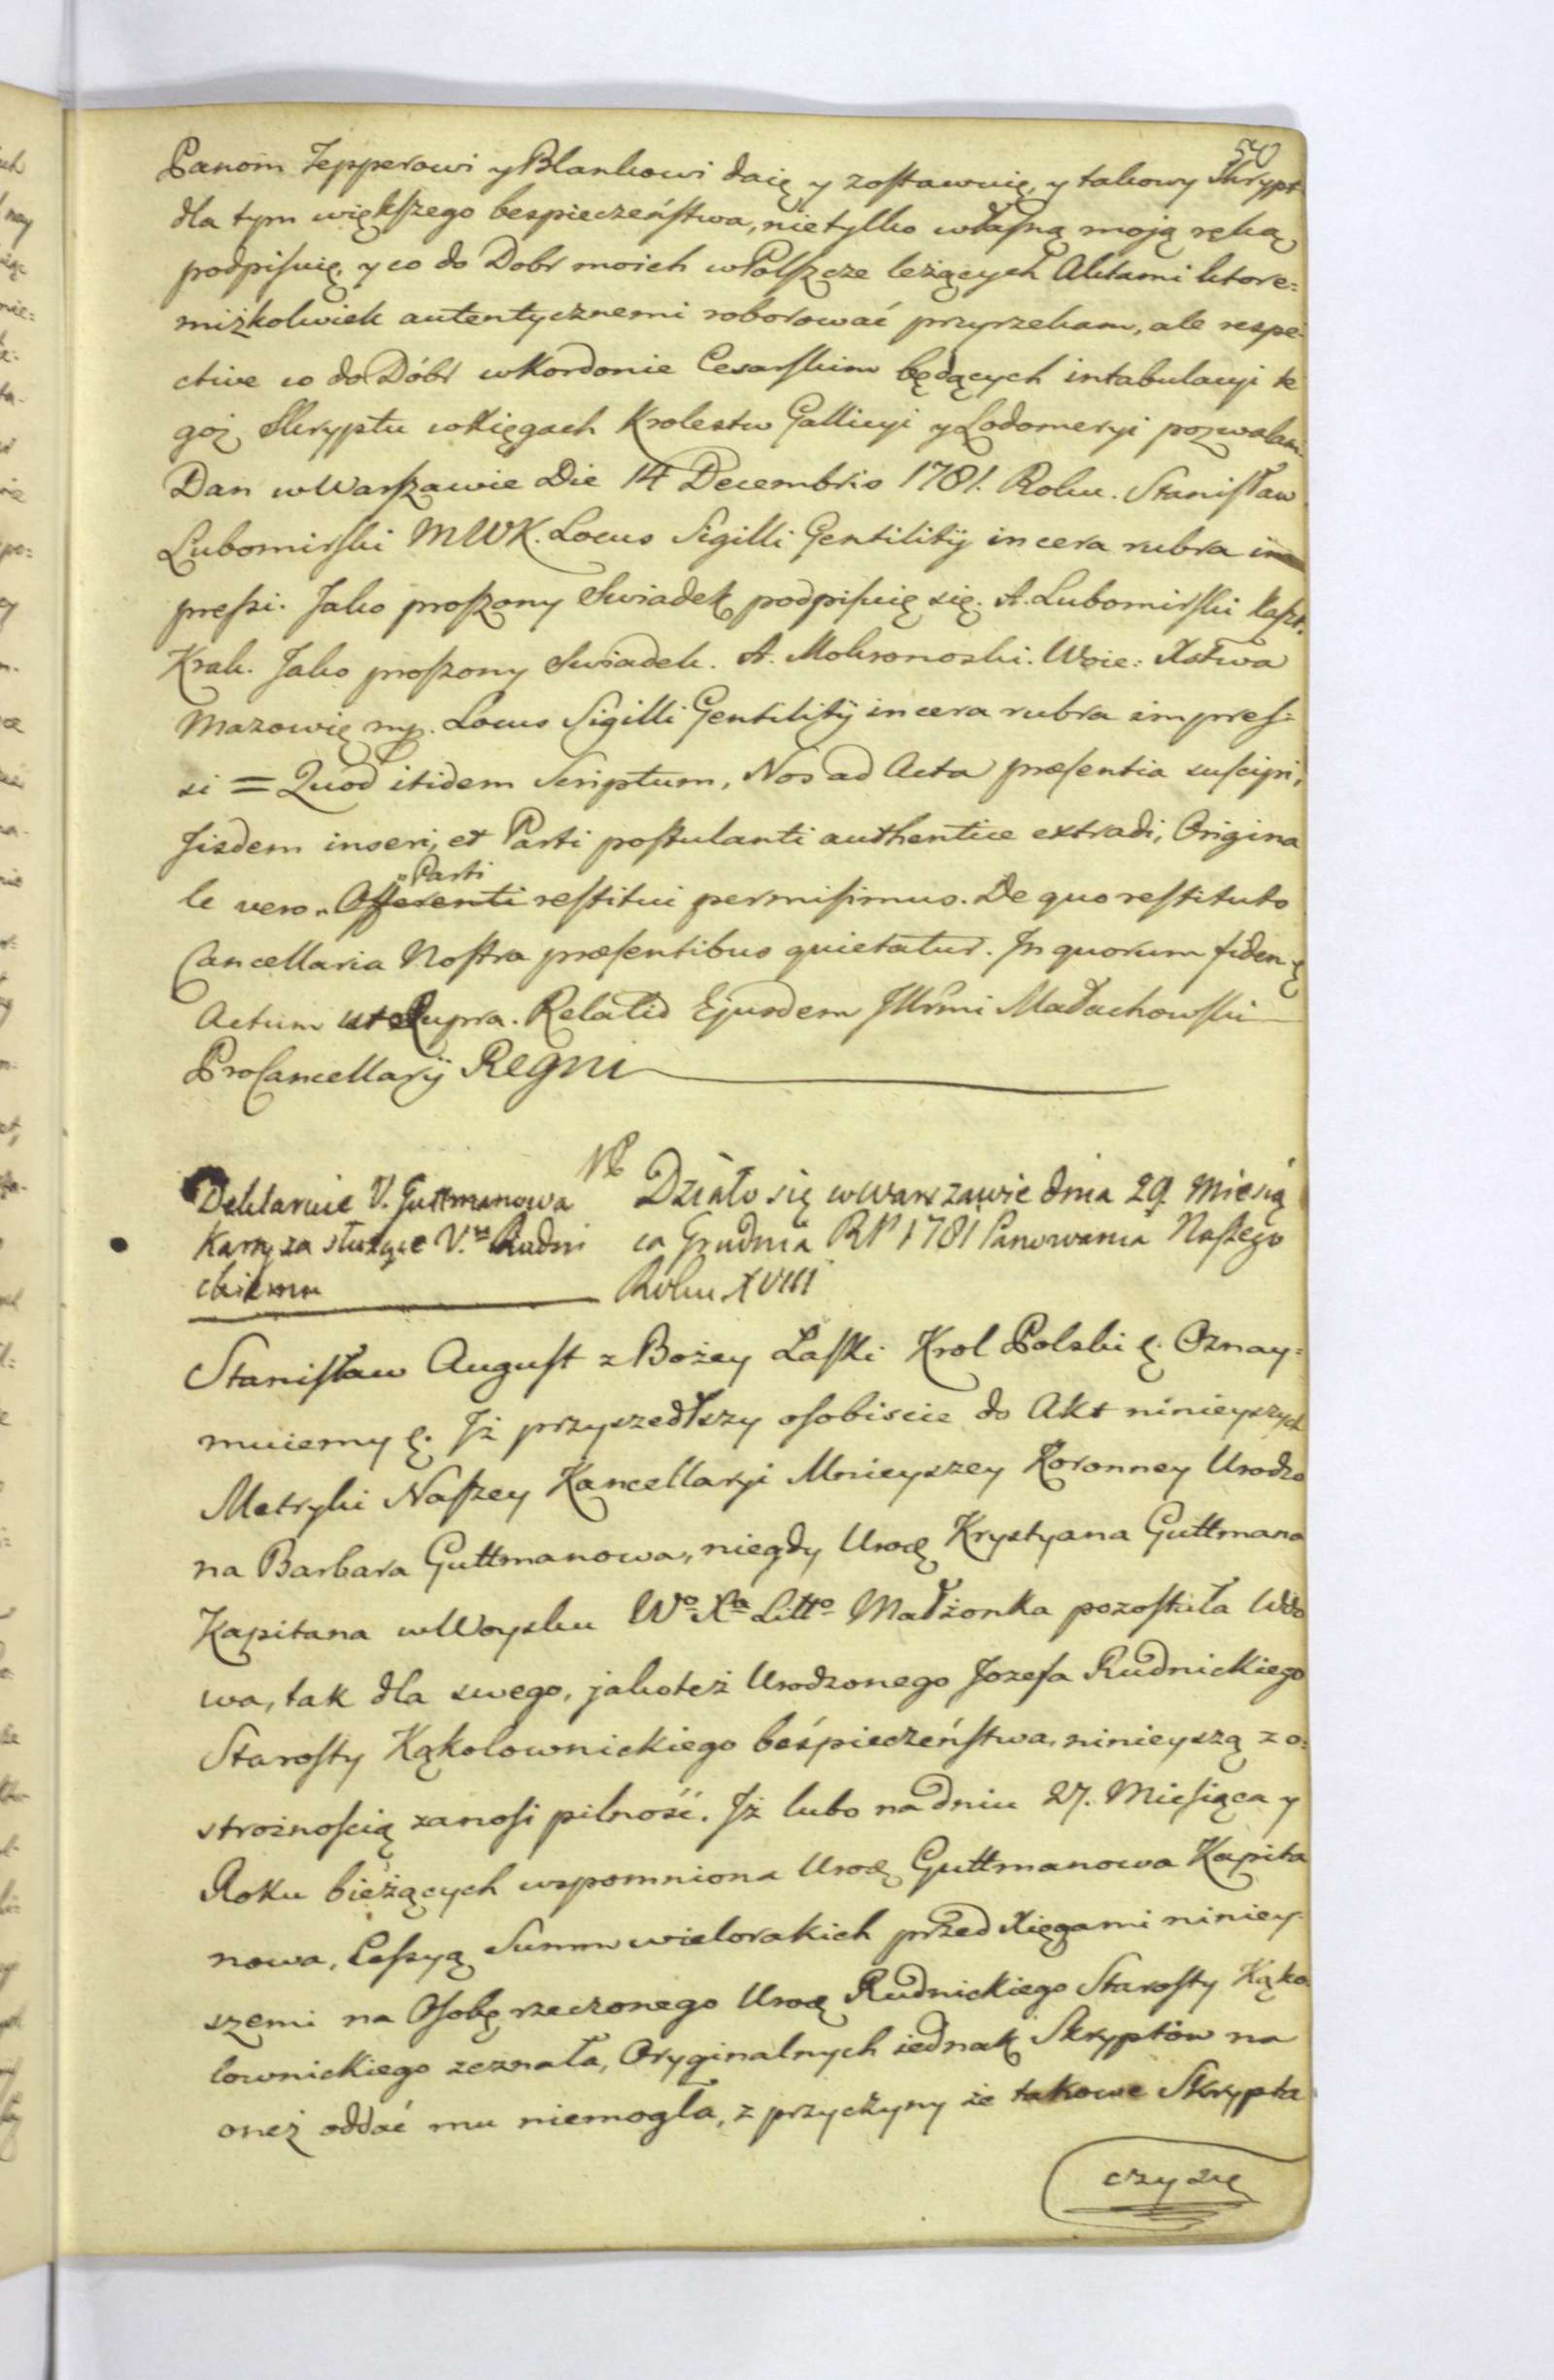 50
Panom Tepperowi y Blankowi daię y zostawuię, y takowy Skrypt
dla tym większego bespieczeństwa, nietylko własną moją ręką
podpisuię, y co do Dobr moich w Polszcze leżących Aktami ktore=
miżkolwiek autentycznemi roborować przyrzekam, ale respe=
ctive co do Dóbr w Kordonie Cesarskim będących intabulacyi te
goż Skryptu w Xięgach Krolestw Gallicyi y Lodomeryi pozwalam.
Dan w Warszawie Die 14 Decembris 1781. Roku. Stanisław
Lubomirski MWK. Locus Sigilli Gentilitij in cera rubra im
pressi. Jako proszony Swiadek podpisuię się. A. Lubomirski Kaszt.
Krak. Jako proszony Swiadek. A. Mokronoski. Woie: Xstwa
Mazowię mp. Locus Sigilli Gentilitij in cera rubra impres=
si = Quod itidem Scriptum, Nos ad Acta præsentia suscipi,
Iisdem inseri, et Parti postulanti authentice extradi, Origina
le vero "Parti Offerenti restitui permisimus. De quo restituto
Cancellaria Nostra præsentibus quietatur. In quorum fidem &
Actum ut Supra. Relatio Ejusdem Illrmi Małachowski
ProCancellarij Regni
Deklaracie V. Guttmanowa
Karryza służące V. Rudni
ckiemu
NB Działo się w Warszawie dnia 29 Miesią
ca Grudnia RP 1781 Panowania Naszego
Roku XVIII
Stanisław August z Bożey Łaski Krol Polski &. Oznay=
muiemy &. Iż przyszedłszy osobiscie do Akt ninieyszych
Metryki Naszey Kancellaryi Mnieyszey Koronney Urodzo
na Barbara Guttmanowa, niegdy Urodź Krystyana Guttmana
Kapitana w Woysku Wo Xa Litto Małżonka pozostała Wdo
wa, tak dla swego, jakoteż Urodzonego Jozefa Rudnickiego
Starosty Kąkolownickiego beśpieczeństwa, ninieyszą z o=
strożnością zanosi pilność. Iż lubo na dniu 27. Miesiąca y
Roku bieżących wspomniona Urodź Guttmanowa Kapita
nowa, Cessyą Summ wielorakich przed Xięgami niniey=
szemi na Osobę rzeczonego Urodź Rudnickiego Starosty Kąko
lownickiego zeznała, Oryginalnych iednak Skryptów na
oneż oddać mu niemogła, z przyczyny że takowe Skrypta
czyżię